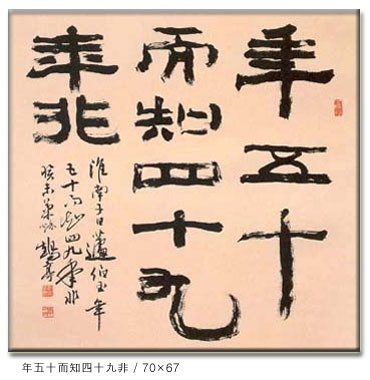 年五十
而知四十九
年非
淮南子曰蘧伯玉年
五十而知四九年非
癸未
年五十而知四十九非 / 70×67